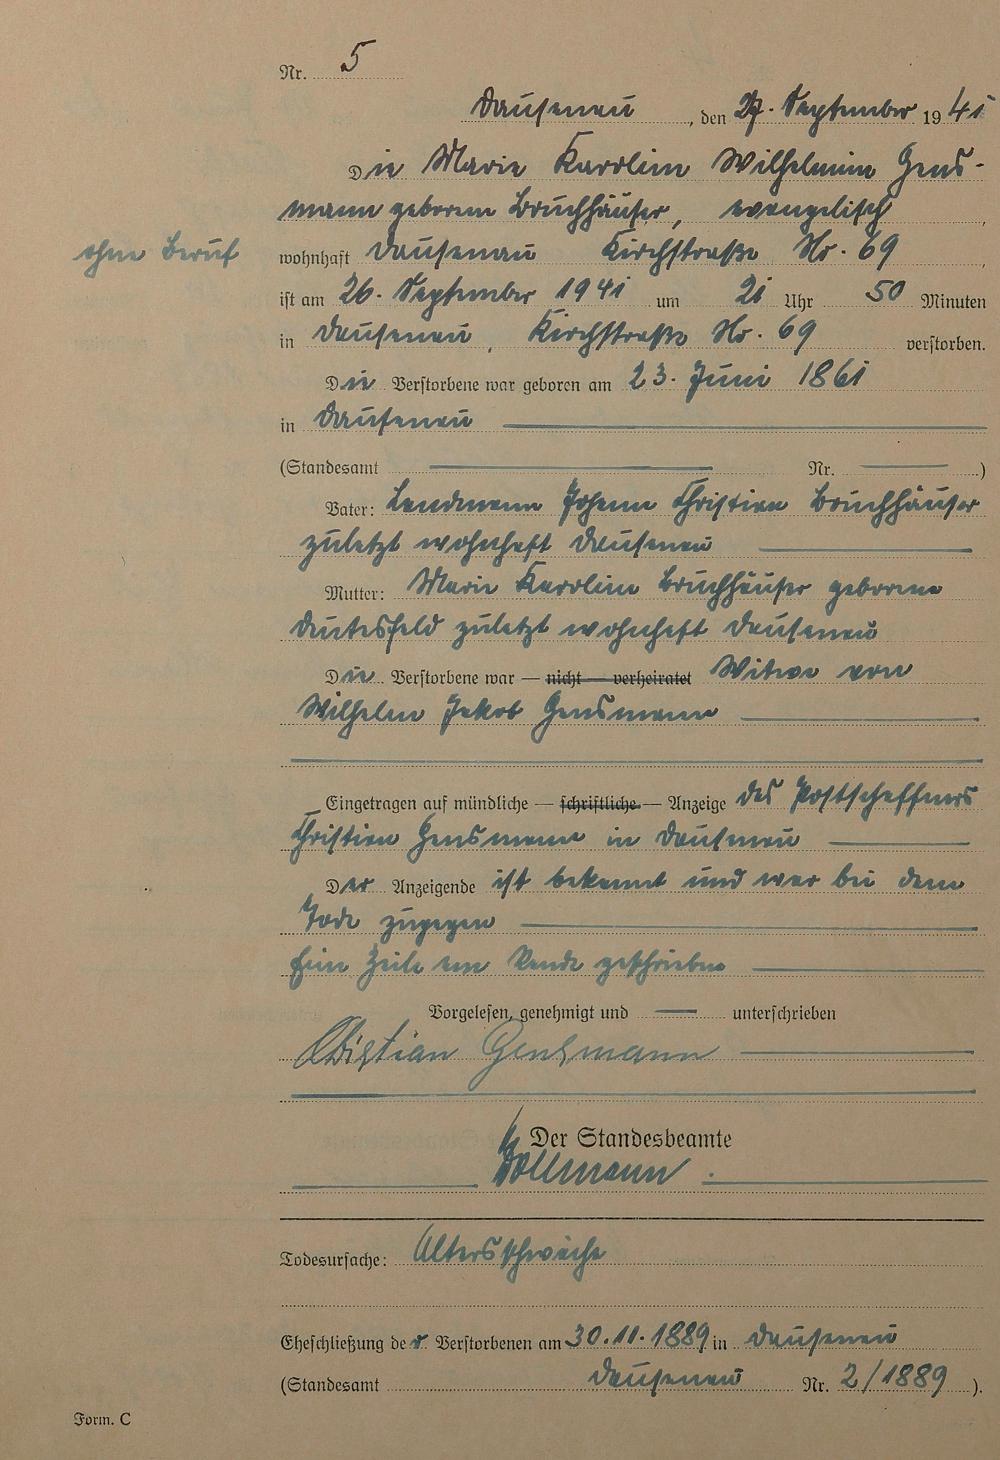 Nr. 5
Dausenau, den 27. September 1941
Die Marie Karoline Wilhelmine Gens-
mann geborene Bruchhäuser, evangelisch,
ohne Beruf
wohnhaft Dausenau Kirchstraße Nr. 69,
ist am 26. September 1941 um 21 Uhr 50 Minuten
in Dausenau, Kirchstraße Nr. 69 verstorben.
Die Verstorbene war geboren am 23. Juni 1861
in Dausenau
(Standesamt Nr. )
Vater: Landmann Johann Christian Bruchhäuser
zuletzt wohnhaft Dausenau
Mutter: Marie Karoline Bruchhäuser geborene
zuletzt wohnhaft Dausenau
Die Verstorbene war — nicht — verheiratet Witwe von
Wilhelm Jakob Gensmann
Eingetragen auf mündliche — schriftliche — Anzeige des Postschaffners
Christian Gensmann in Dausenau
Der Anzeigende ist bekannt und war bei dem
Tode zugegen
Eine Zeile am Rande geschrieben
Vorgelesen, genehmigt und unterschrieben
Christian Gensmann
Der Standesbeamte
Todesursache: Altersschwäche
Eheschließung der Verstorbenen am 30.11.1889 in Dausenau
(Standesamt Dausenau Nr. 2/1889 ).
Form. C